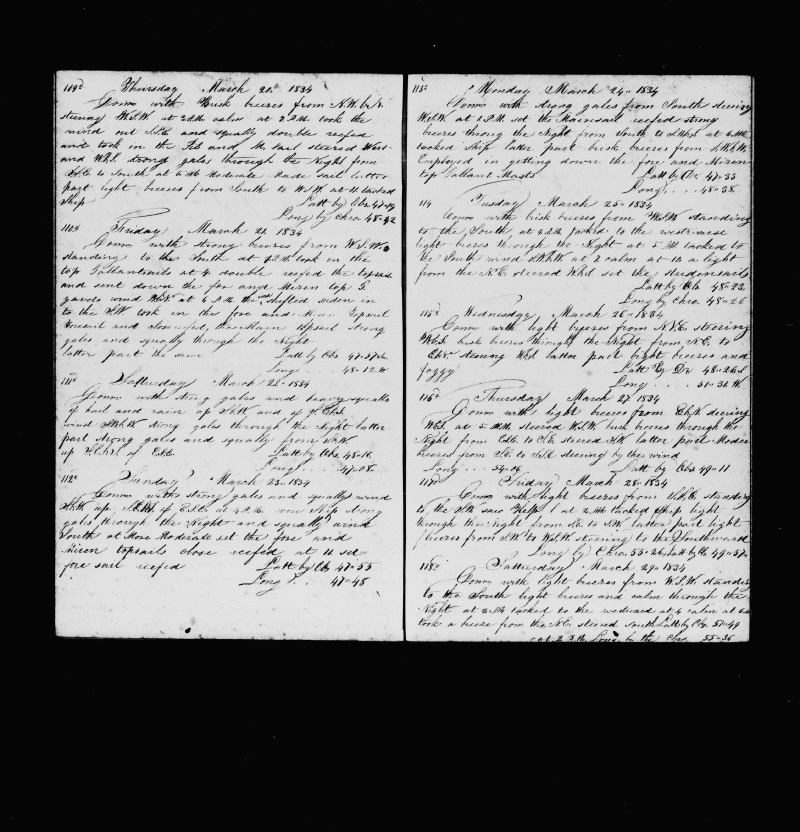 109d Thursday March 20th 1834
Comes with Brisk breezes from N.W. b N.
steering W.S.W at 2 A.M. calm at 2 P.M. took the
wind out and squally double reefed
and took in the Jib and M. sail steered West
and W.b.S. strong gales through the Night from
to South at 6 AM Moderate made sail latter
part light breezes from South to W.S.W. at 11 tacked
Ship Latt by Obs 47-14
Long by Chro. 48-42
110th Friday March 21 1834
Comes with strong breezes from W.S.W.
standing to the South at 2 P.M. took in the
top Gallantsails at 4 double reefed the topsails
and sent down the fore and Mizen top G.
yards wind at 6 P.M. the wind shifted suden in
to the took in the fore and Mizen Topsail
Foresail and close reefed the Main topsail strong
gales and squally through the Night
latter part the same Latt by Obs 47-57
Long 48-12 W
111th Satturday March 22 1834
Comes with strong gales and heavy squalls
of hail and rain up and of
wind strong gales through the Night latter
part strong gales and squally from
up of Latt by Obs 48-16
Long 47-08
112th Sunday March 23 1834
Comes with strong gales and squally wind
up of at 4 P.M. wore strong
gales through the Night and squally wind
South at More Moderate set the fore and
Mizen topsails close reefed at 10 set
fore sail reefed Latt by Ob 47-55
Long 47-48
113th Monday March 24th 1834
Comes with strong gales from South steering
W.b.S. at 1 P.M. set the Mainsail reefed strong
breezes throug the Night from South to at 6 AM
tacked Ship latter part brisk breezes from S.W.b.W.
Employed in getting down the fore and Mizen
top Gallant Masts Latt by Ob 47-33
Long 48-38
114 Tuesday March 25th 1834
Comes with brisk breezes from W.S.W standing
to the South at 2 P.M. tacked to the westward
light breezes through the Night at 5 AM tacked to
the South wind at 7 calm at 10 a light
from the N.E. steered W.b.S set the studensails
Latt by Ob 48-23
Long by Chro. 48-26
115th Wednesday March 26th 1834
Comes with light breezes from N.N.E. steering
W.b.S. brisk breezes through the Night from N.E. to
steering W.b.S latter part light breezes and
foggy Latt by Dr 48-26
Long 51-31 W
116th Thursday March 27 1834
Comes with light breezes from steering
W.b.S. at 5 AM steered W.S.W. brisk breezes through the
Night from to S.E. steered S.W. latter part Moder
breezes from S.E. to steering by the wind
Long 54-04 Latt by Obs 49-11
117th Friday March 28th 1834
Comes with light breezes from S.S.E. standing
to the S.W. saw Kelp at 2 AM tacked Ship light
through the night from S.E. to S.W. latter part light
breezes from S.W to W.S.W. steering to the Southward
Long by Chro. 53-26 Latt by Ob 49-57
118th Satturday March 29th 1834
Comes with light breezes from W.S.W standing
to the South light breezes and calm through the
Night at 8 AM tacked to the westward at 4 calm at 6
took a breeze from the N.E. steered South Latt by Obs. 51-49
Long by the Chro 55-36